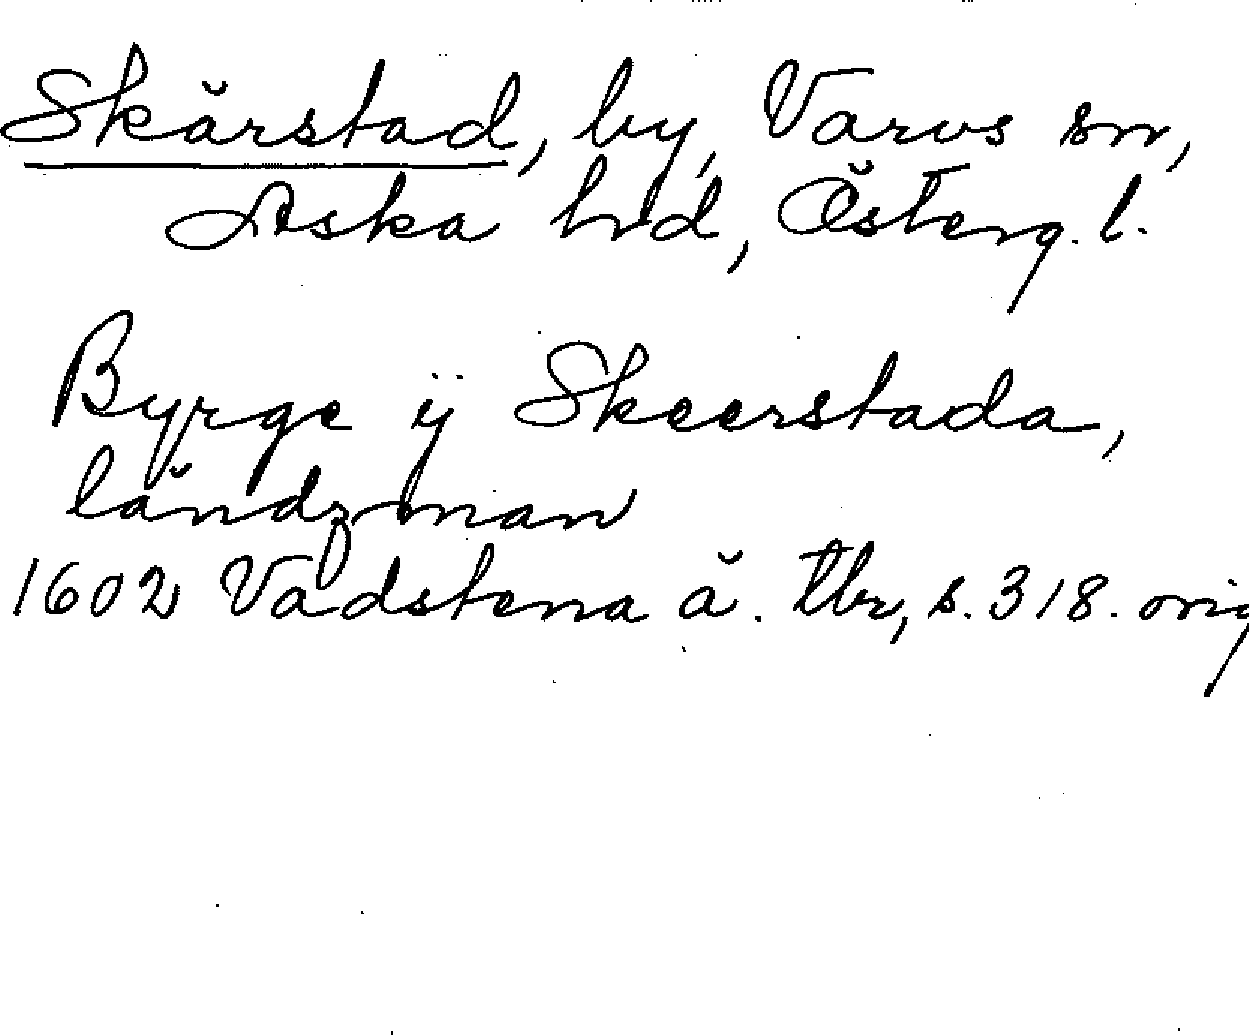 Skärstad, by, Varvs sn,
Aska hd, Österg. l.
Byrge ÿ Skeerstada,
ländzman
1602 Vadstena ä. tbr, s. 318. orig